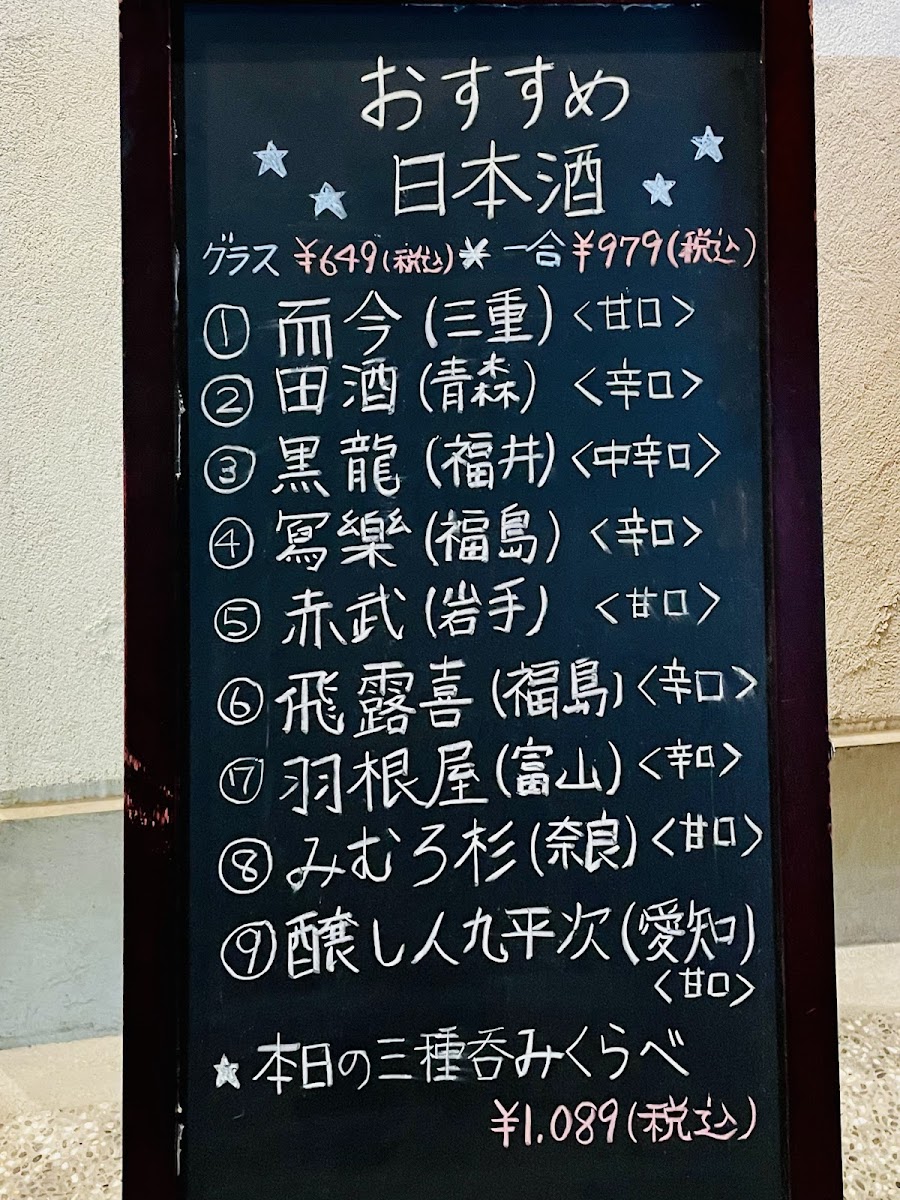 おすすめ
日本酒
グラス ¥649(税込)* 一合 ¥979(税込)
① 而今(三重)<甘口>
② 田酒(青森)<辛口>
③ 黒龍(福井)<中辛口>
④ 冩樂(福島)<辛口>
⑤ 赤武(岩手)<甘口>
⑥ 飛露喜(福島)<辛口>
⑦ 羽根屋(富山)<辛口>
⑧ みむろ杉(奈良)<甘口>
⑨ 醸し人九平次(愛知)
<甘口>
★本日の三種呑みくらべ
¥1.089(税込)